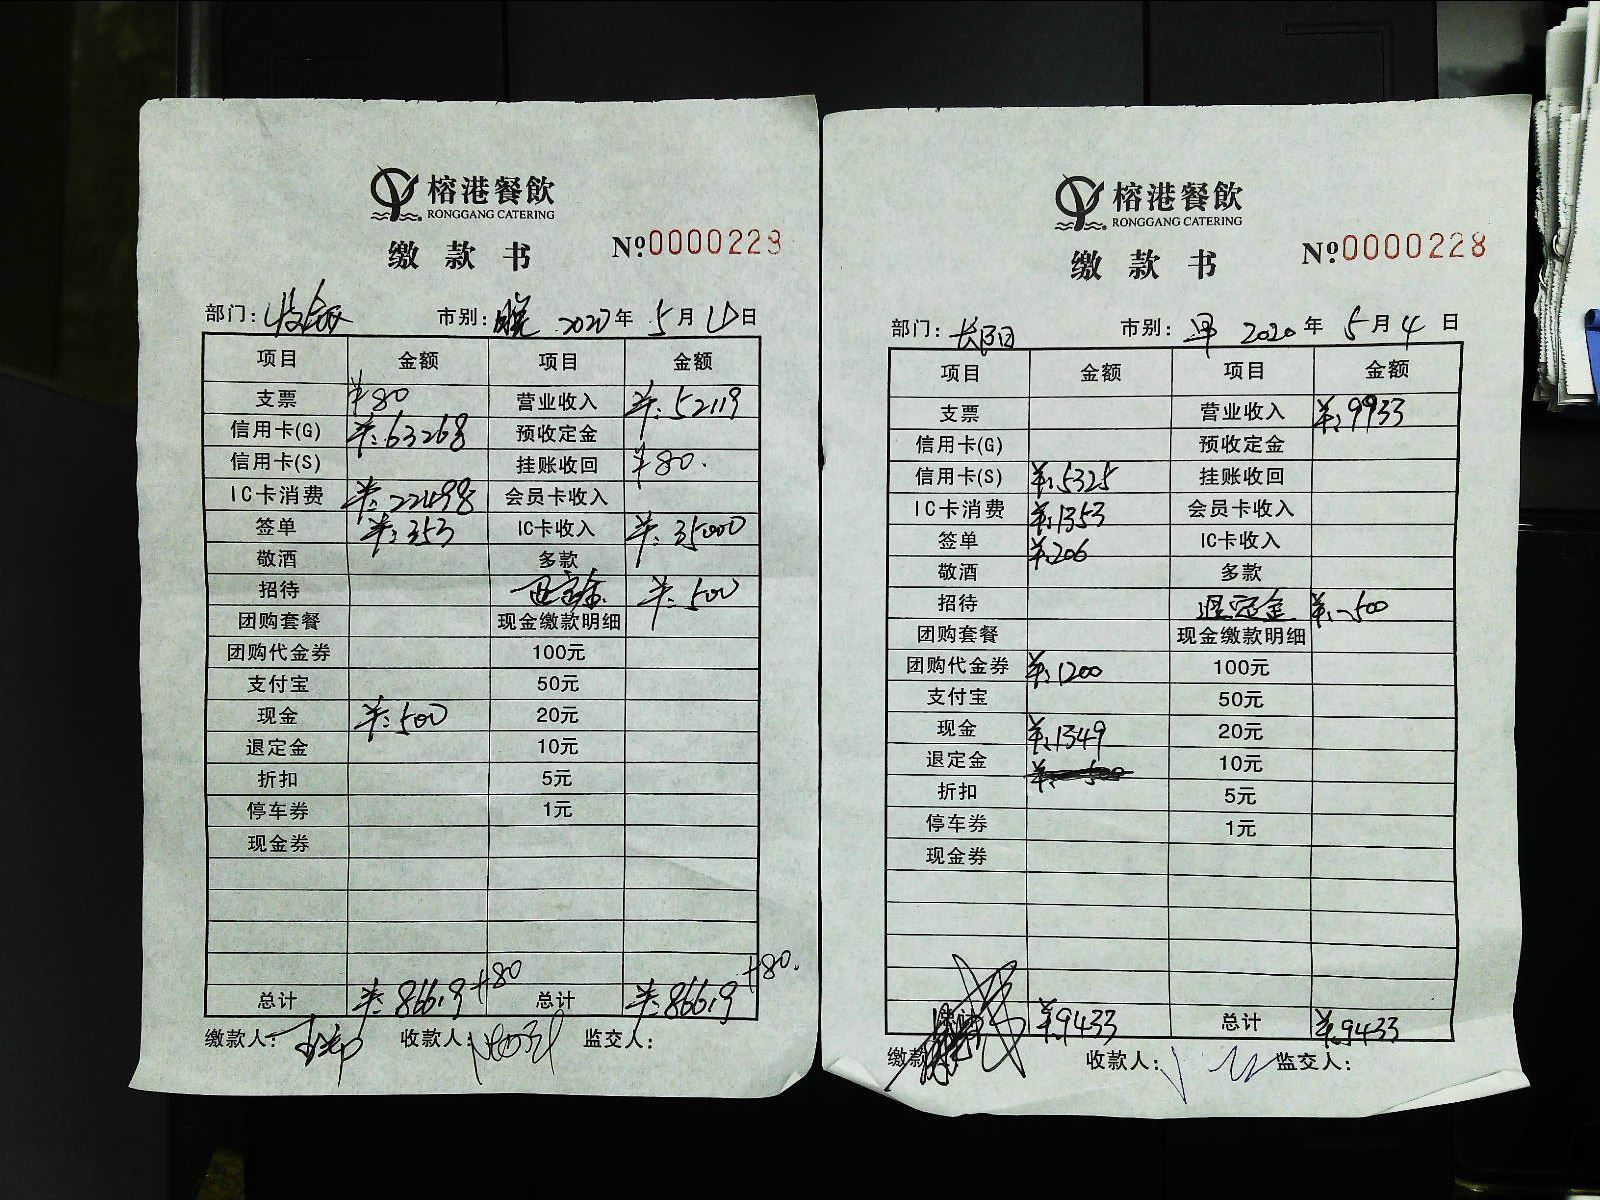 榕港餐飲
RONGGANG CATERING
缴款书 №0000229
部门: 市别:晚 2020年 5月 日
项目 金额 项目 金额
支票 ¥80 营业收入 ¥:52119
信用卡(G) ¥:63268 预收定金
信用卡(S) 挂账收回 ¥80.
IC卡消费 ¥:22498 会员卡收入
签单 ¥:353 IC卡收入 ¥:35000
敬酒 多款
招待 定金 ¥:500
团购套餐 现金缴款明细
团购代金券 100元
支付宝 50元
现金 ¥:500 20元
退定金 10元
折扣 5元
停车券 1元
现金券
总计 ¥:86619+80 总计 ¥:86619+80.
缴款人: 收款人: 监交人:
榕港餐飲
RONGGANG CATERING
缴款书 №0000228
部门: 市别:早 2020年 5月4日
项目 金额 项目 金额
支票 营业收入 ¥:9933
信用卡(G) 预收定金
信用卡(S) ¥:5325 挂账收回
IC卡消费 ¥:1353 会员卡收入
签单 ¥:206 IC卡收入
敬酒 多款
招待 退定金 ¥:-500
团购套餐 现金缴款明细
团购代金券 ¥:1200 100元
支付宝 50元
现金 ¥:1349 20元
退定金 10元
折扣 5元
停车券 1元
现金券
¥:9433 总计 ¥:9433
缴款 收款人: 监交人: